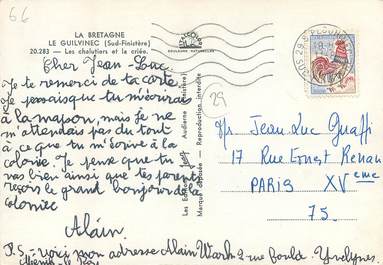 66
LA BRETAGNE
LE GUILVINEC (Sud-Finistère)
20.283 - Les chalutiers et la criée.
Cher Jean-Luc
Je te remerci de ta carte
Je pensais que tu m'écrirais
à la maison, mais je ne
m'attendais pas du tout
à ce que tu m'écrive à la
colonie. Je pense que tu
vas bien ainsi que tes parents
reçois le grand bonjour de la
colonie
Alain
P.S - voici mon adresse Alain 2 rue Yvelynes.
Les Editions Jos Audierne (Finistère)
Marque déposée - Reproduction interdite
29
Mr Jean Luc
17 Rue Ernest Renan
PARIS XVeme
75.